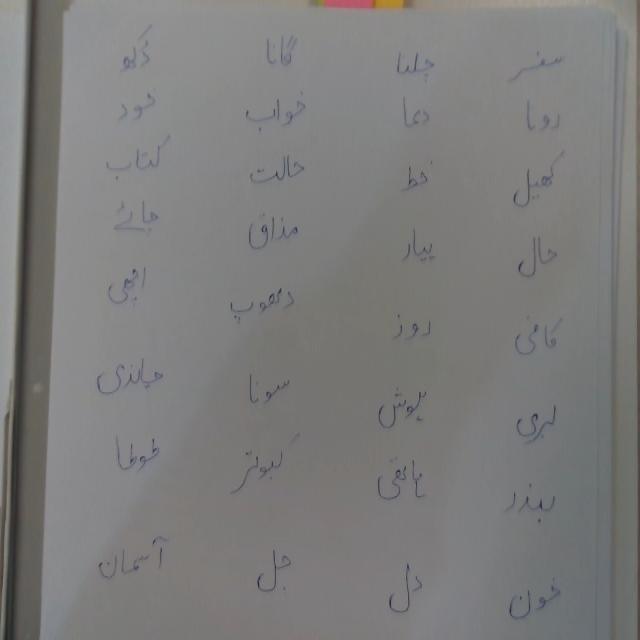 سفر چلنا گانا دکھ
رونا دعا خواب خود
کھیل خط حالت کتاب
حال پیار مذاق جائے
کافی روز دھوپ اچھی
بری ہوش سونا چاندی
بندر ہاتھی کبوتر طوطا
خون دل جل آسمان